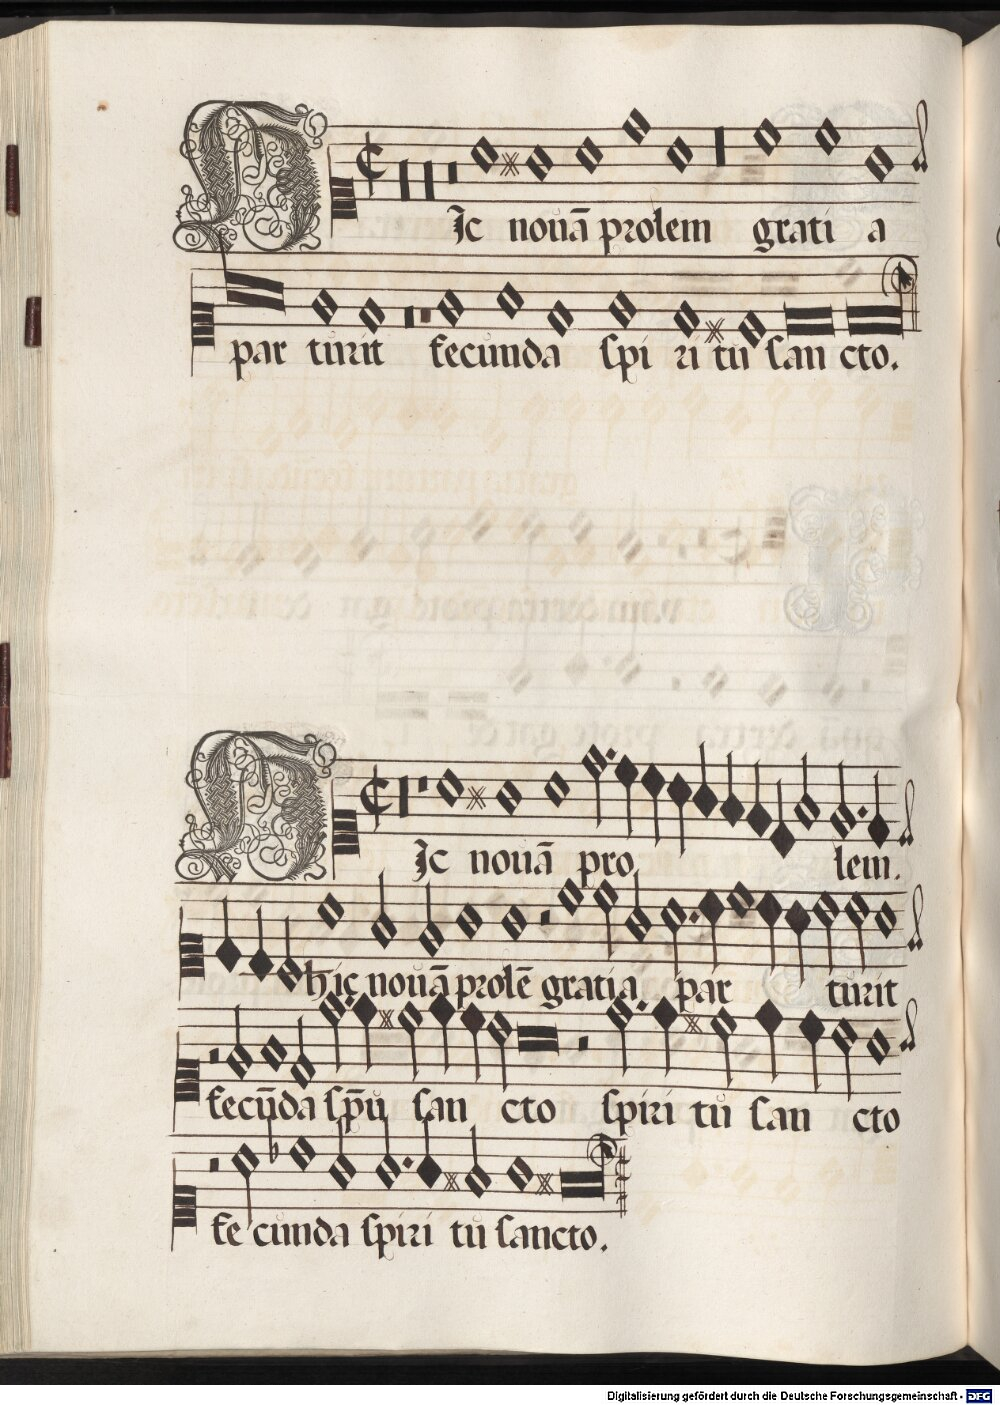 HIc nouā prolem grati a
par turit fecunda spi ri tu sancto.
HIc nouā pro lem.
hic nouā prolē gratia par turit
fecūda sp̄u san cto spiri tu san cto
fe cunda spiri tu sancto.
Digitalisierung gefördert durch die Deutsche Forschungsgemeinschaft - DFG